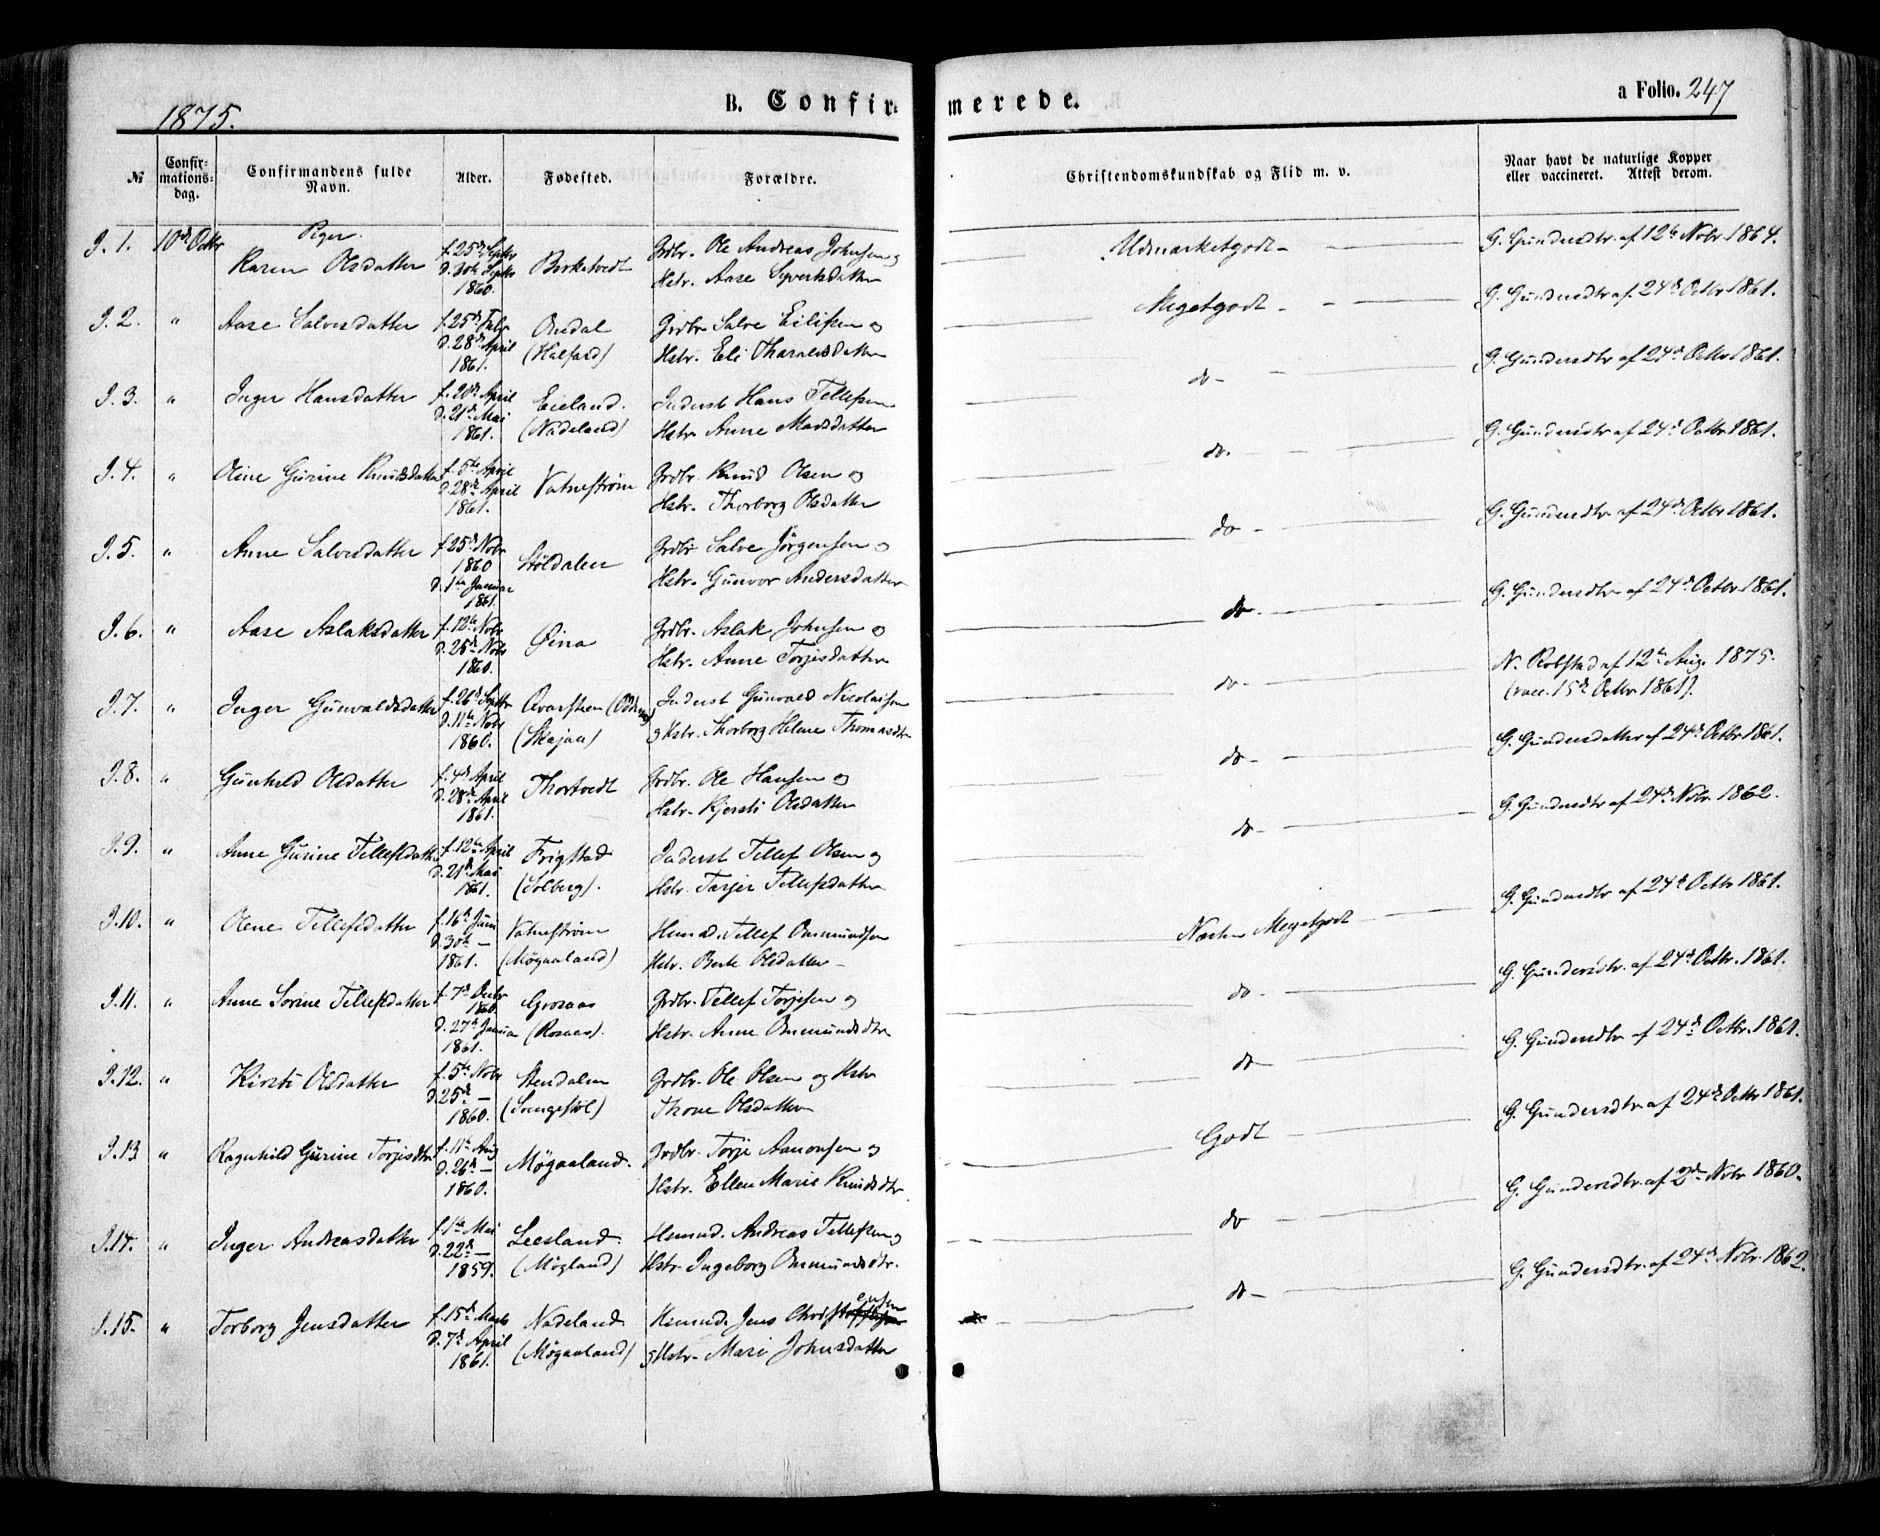 1875.
B. Confirmerede.
a Folio. 247
№
Confirmationsdag.
Confirmandens fulde Navn.
Alder.
Fødested.
Forældre.
Christendomskundskab og Flid m. v.
Naar havt de naturlige Kopper eller vaccineret. Attest derom.
Piger.
J. 1. 10de Octbr Karen Olsdatter f. 25de Septbr d. 30te Septbr 1860. Birketvedt Grdbr. Ole Andreas Johnsen og Hstr. Aase Syvertsdatter Udmærketgodt - G. Gundersdtr. af 12te Nobr 1864.
J. 2. " Aase Salvesdatter f. 25de Febr d. 28de April 1861. Ondal (Halfard) Grdbr Salve Eilifsen og Hstr. Eli Tharaldsdatter Megetgodt - G. Gundersdtr af 24de Octbr 1861.
J. 3. " Inger Hansdatter f. 20de April d. 21de Mai 1861. Eieland. (Nadeland) Inderst Hans Tellefsen Hstr Anne Madsdatter do - G. Gundersdtr af 24de Octbr 1861.
J. 4. " Oline Gurine Knudsdatter f. 5te April d. 28de April 1861. Vatnestrøm Grdbr. Knud Olsen og Hstr. Thorborg Olsdatter do. G. Gundersdtr af 24de Octbr 1861.
J. 5. " Anne Salvesdatter f. 25de Nobr 1860 d. 1te Januar 1861. Støldalen Grdbr Salve Jørgensen og Hstr. Gunvor Andersdatter do - G. Gundersdtr af 24de Octbr 1861.
J. 6. " Aase Aslaksdatter f. 12te Nobr d. 25de Nobr 1860. Øina Grdbr. Aslak Johnsen og Hstr. Anne Torjisdatter do - G. Gundersdtr af 24de Octbr 1861.
J. 7. " Inger Gunvaldsdatter f. 26de Septbr d. 11te Nobr 1860. Qvarsten (Skajaa) Inderst Gunvald Nicolaisen og Hstr. Thorborg Helene Thomasdtr do - N. Robstad af 12te Aug. 1875. (vacc. 15de Octbr 1861).
J. 8. " Gunhild Olsdatter f. 4de April d. 28de April 1861. Thortvedt Grdbr. Ole Hansen og Hstr. Kjersti Olsdatter do - G. Gundersdatter af 24de Octbr 1861.
J. 9. " Anne Gurine Tellefsdatter f. 12te April d. 21de Mai 1861. Frigstad (Solberg). Inderst Tellef Olsen og Hstr. Torjer Tellefsdatter do - G. Gundersdtr af 24de Nobr. 1862.
J. 10. " Olene Tellefsdatter f. 16de Juni d. 30te - 1861. Vatnestrøm (Møgaaland) Hsmd. Tellef Ommundsen Hstr. Berte Olsdatter - Næsten Megetgodt G. Gundersdtr af 24de Octbr 1861.
J. 11. " Anne Sorine Tellefsdatter f. 7de Decbr 1860. d. 27de Januar 1861. Grosaas (Rosaas). Grdbr. Tellef Torjesen og Hstr. Anne Ommundsdtr do - G. Gundersdtr. af 24de Octbr. 1861.
J. 12. " Kirsti Olsdatter f. 5te Nobr d. 25de - 1860. Stendalen (Songestøl) Grdbr. Ole Olsen og Hstr Thone Olsdatter do - G. Gundersdtr af 24de Octbr. 1861.
J. 13 " Ragnhild Gurine Torjisdtr f. 11te Aug d. 26de - 1860. Møgaaland. Grdbr. Torje Aanonsen og Hstr. Ellen Marie Knudsdtr. Godt G. Gundersdtr. af 24de Octbr 1861.
J. 14. " Inger Andreasdatter f. 1te Mai d. 22de - 1859. Leesland (Mögland) Hsmd. Andreas Tellefsen og Hstr. Ingeborg Ommundsdtr. do - G. Gundersdtr. af 2de Nobr 1860.
J. 15. " Torborg Jensdatter f. 15de Marts d. 7de April 1861. Nadeland (Møgaaland) Hsmd. Jens Christensen og Hstr. Mari Johnsdatter do - G. Gundersdtr. af 24de Nobr. 1862.